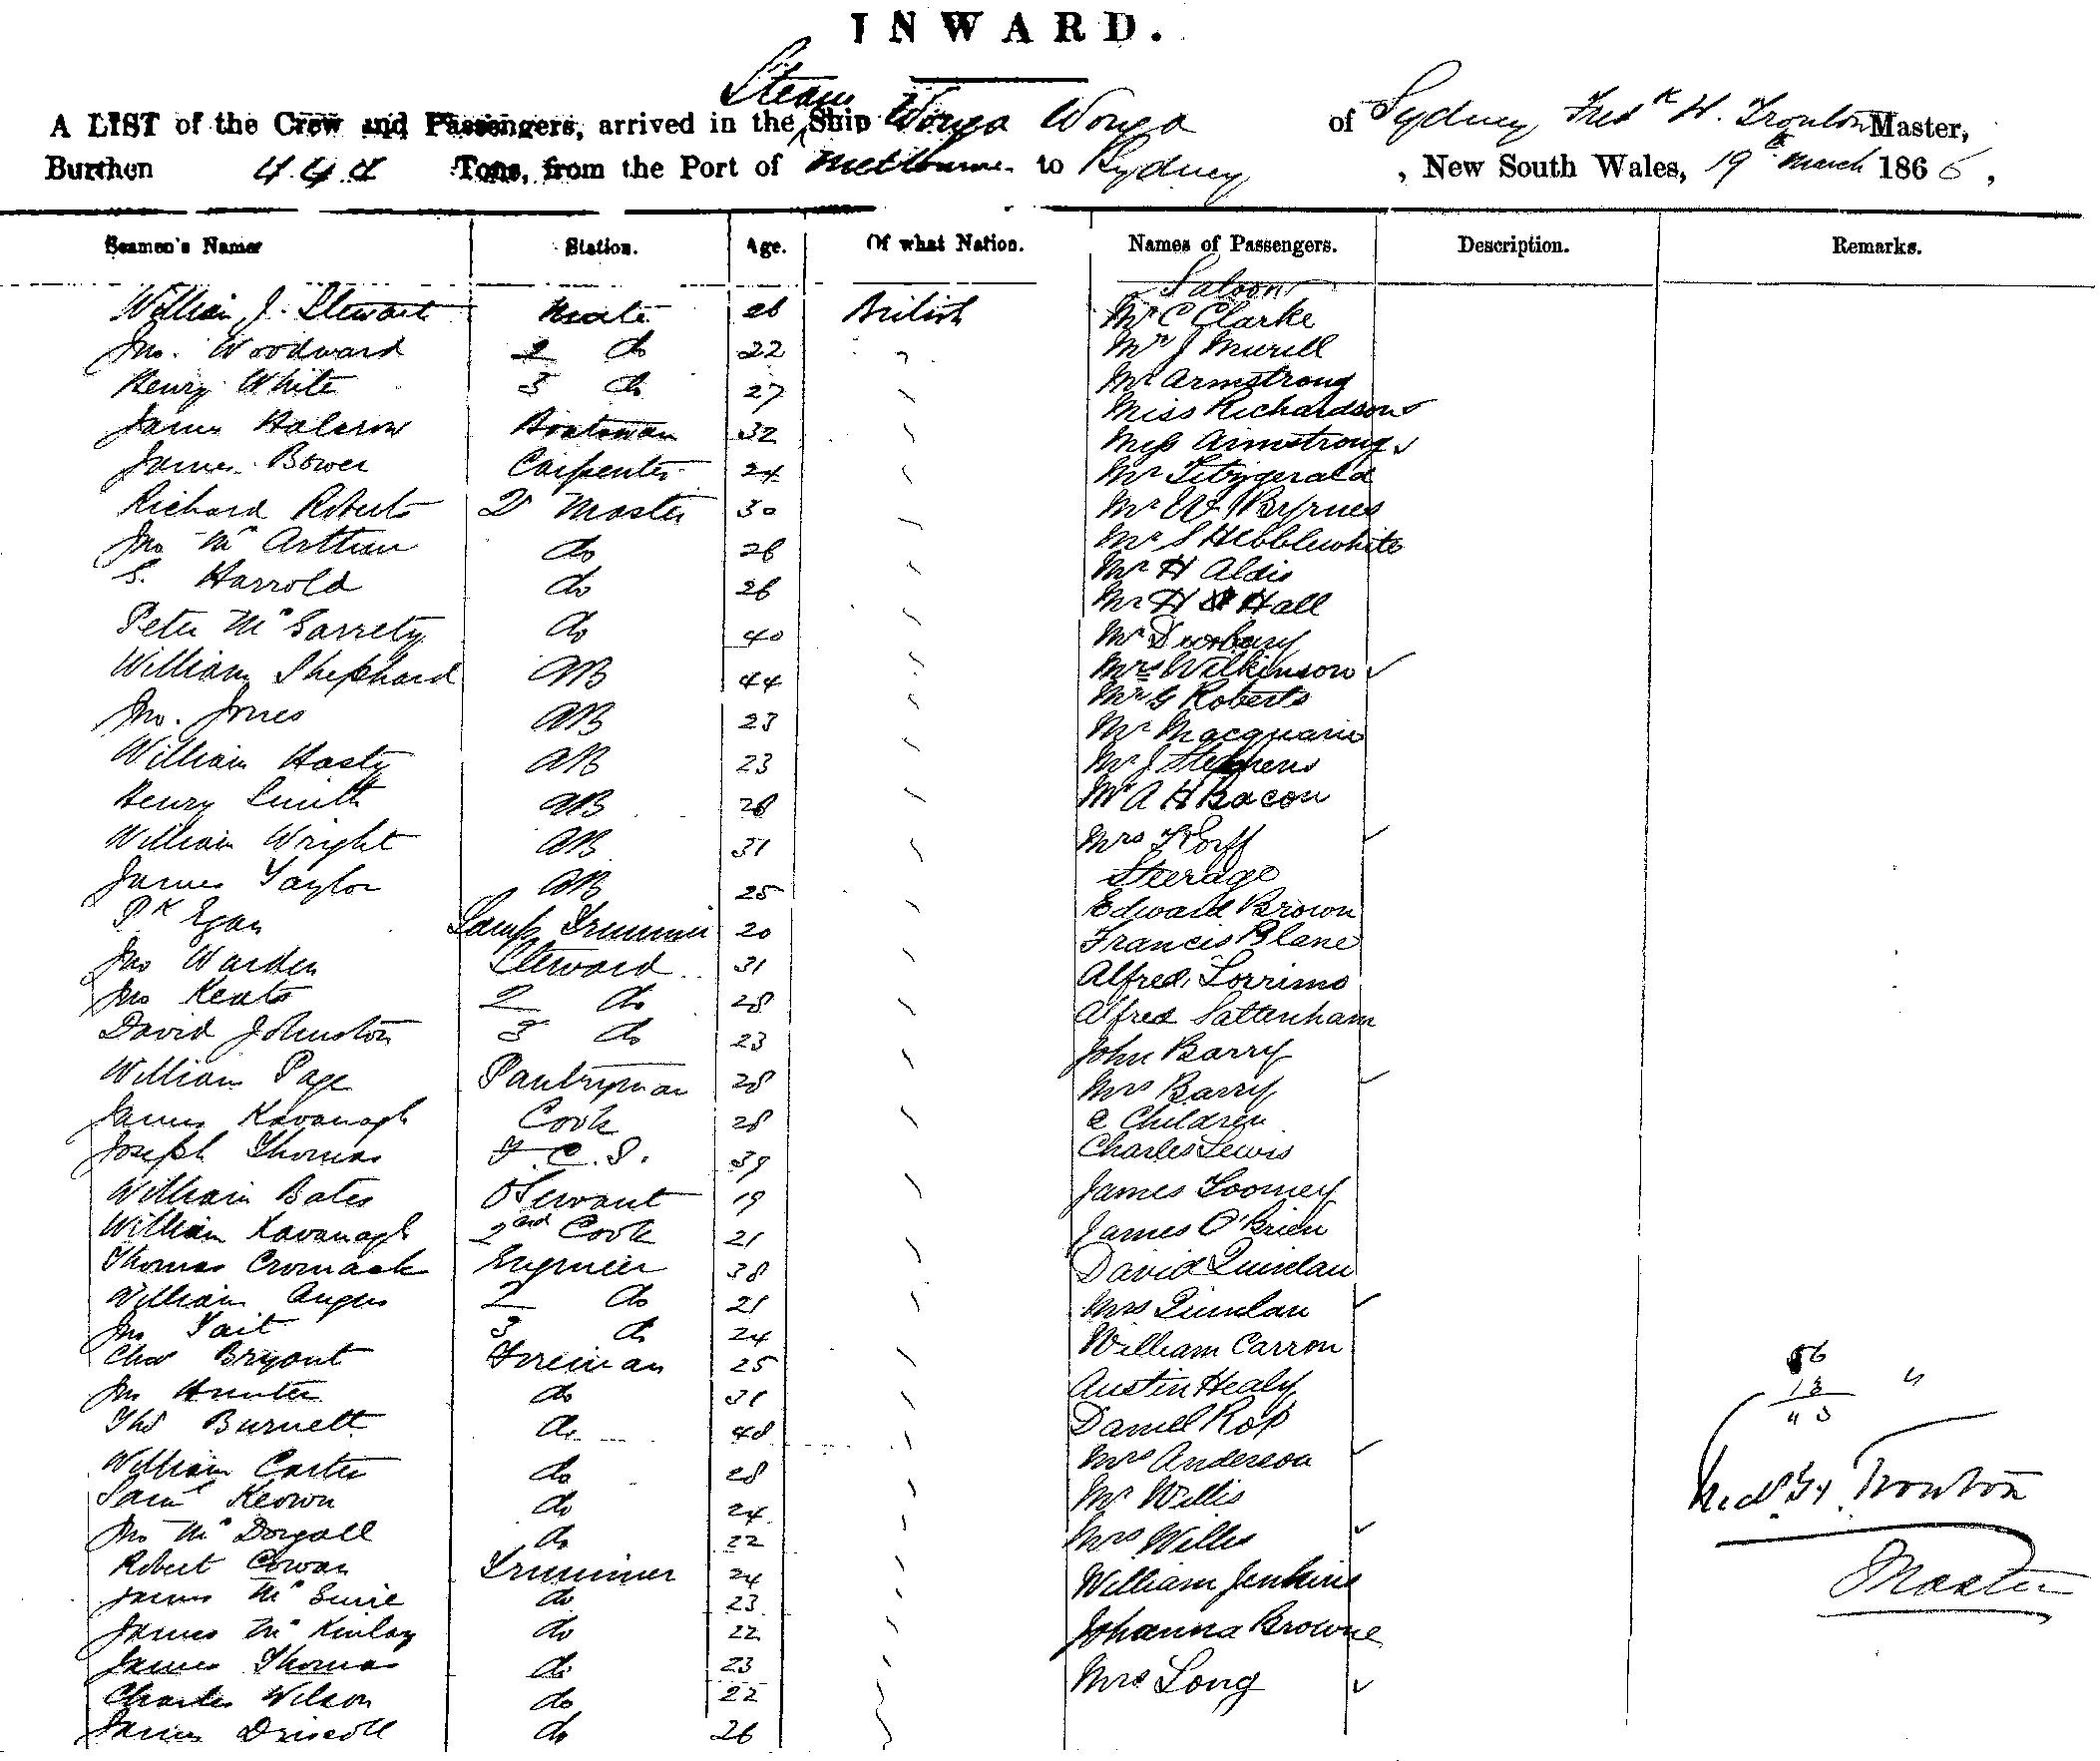 INWARD.
Steam
A LIST of the Crew and Passengers, arrived in the Ship Wonga Wonga of Sydney, Fredk H. Trouton Master,
Burthen Tons, from the Port of Melbourne to Sydney, New South Wales, 19th March 1866,
Seamen's Names Station. Age. Of what Nation. Names of Passengers. Description. Remarks.
Saloon
William J. Stewart Mate 26 British Mr C Clarke
Jno. Woodward 2 do 22 Mr J Murell
Henry White 3 do 27 Mr Armstrong
James Halcrow Boatsman 32 Miss Richardson
James Bower Carpenter 24 Miss Armstrong
Richard Roberts Qr Master 30 Mr Fitzgerald
Jno McArthur do 26 Mr W J Byrnes
S. Harrold do 26 Mr S Hebblewhite
Peter McGarrety do 40 Mr H Aldis
William Shephard AB 44 Mr H Hall
Jno. Jones AB 23 Mr
William Hasty AB 23 Mrs Wilkinson
Henry Smith AB 28 Mr G Roberts
William Wright AB 31 Mr Macquarie
James Taylor AB 25 Mr J Stephens
Pk Egan Lamp Trimmer 20 Mr A H Bacon
Jno Warden Steward 31 Mrs Korff
Jno Keats 2 do 28 Steerage
David Johnston 3 do 23 Edward Brown
William Page Pantryman 28 Francis Blane
James Kavanagh Cook 28 Alfred Lorrimo
Joseph Thomas F.C.S. 39 Alfred Sattenham
William Bates Servant 19 John Barry
William Kavanagh 2nd Cook 21 Mrs Barry
Thomas Cromack Engineer 38 2 Children
William Angus 2 do 21 Charles Lewis
Jno Tait 3 do 24 James Toomey
Chas Bryant Fireman 25 James O'Brien
Jno Hunter do 31 David Quinlan
Thos Burnett do 48 Mrs Quinlan
William Carter do 28 William Carron
Saml Keown do 24 Austin Healy
Jno McDougall do 22 Daniel Ross
Robert Cowan Trimmer 24 Mrs Anderson
James McGuire do 23 Mr Willis
James McKinlay do 22 Mrs Willis
James Thomas do 23 William Jenkins
Charles Wilson do 22 Johanna Browne
James Driscoll do 26 Mrs Long
Fredk H. Trouton
Master